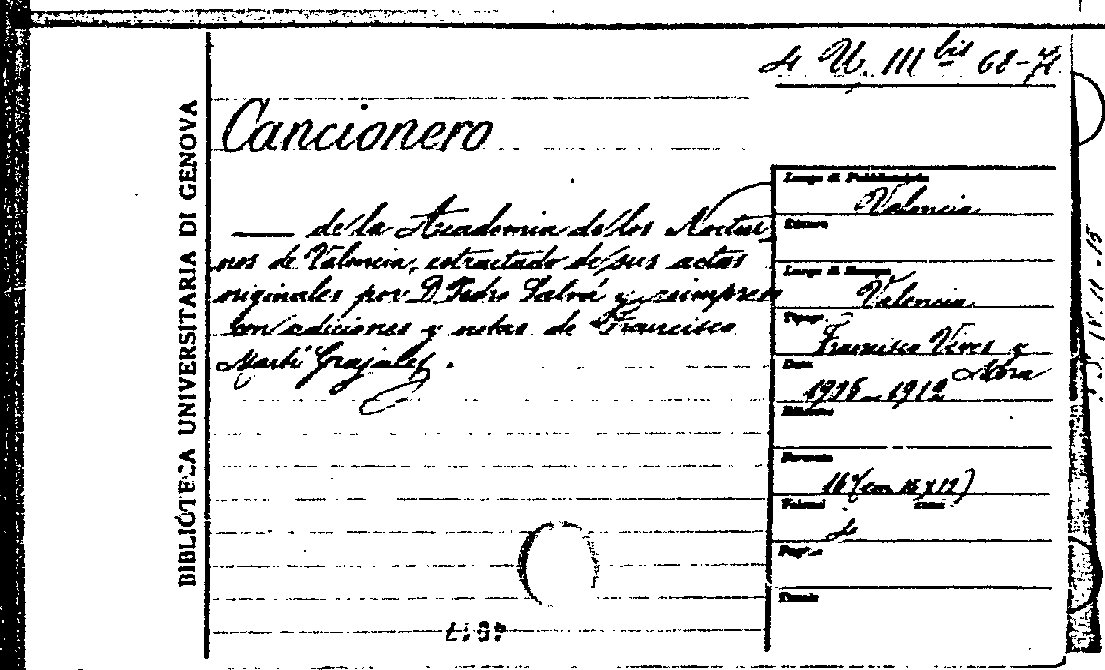 4 U. III bis 68-71
Cancionero
BIBLIOTECA UNIVERSITARIA DI GENOVA
de la Academia de los Noctur
nos de Valencia, estractado de sus actas
originales por D. Pedro Salvá y reimpreso
con adiciones y notas de Francisco
Martí Grajales.
Luogo di Pubblicazione
Valencia
Editore
Luogo di Stampa
Valencia
Tipogr.
Francisco Vives y
Mora
Data
1906-1912
Edizione
Formato
16º (cm 16 x 12)
Volumi
4
Pagine
Tavole